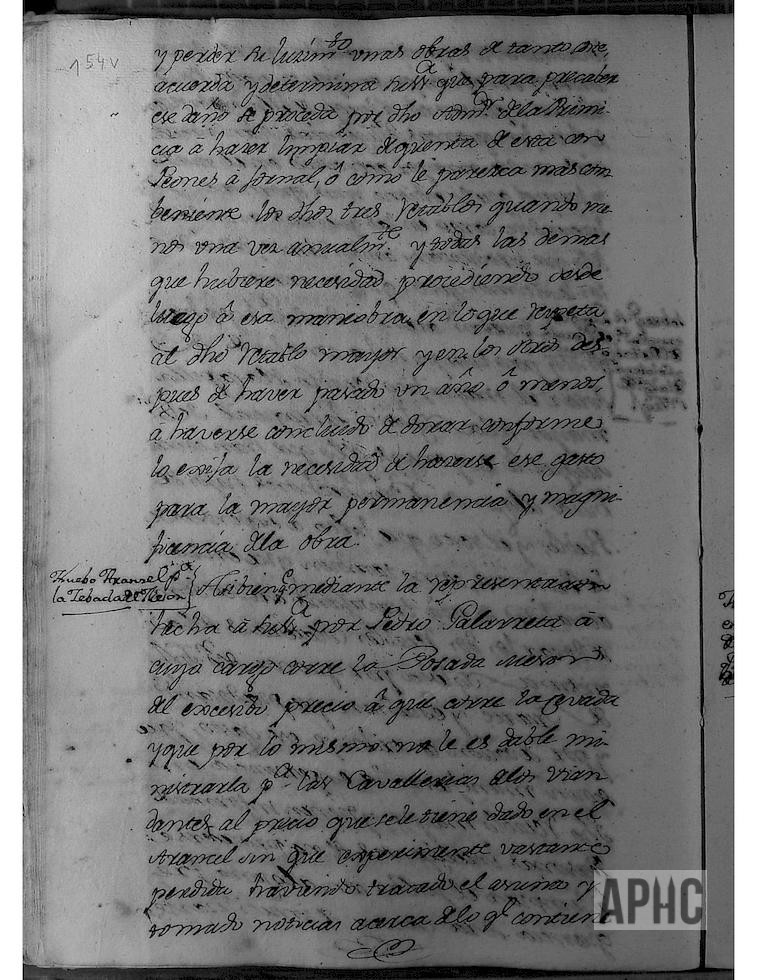 154v
y perder su luzimto unas obras de tanto coste,
acuerda y determina su Sa que para precaber
ese daño se proceda por dho Admor de la Primi-
cia â hazer limpiar de quenta de esta con
Peones â jornal, ô como le parezca mas com
beniente los dhos tres Retablos quando me-
nos una vez anualmte y todas las demas
que hubiere necesidad procediendo desde
luego â esa maniobra en lo que respeta
al dho Retablo mayor y en los otros des-
pues de haver pasado un año ô menos,
â haverse concluido de dorar conforme
lo exija la necesidad de hazerse ese gasto
para la mayor permanencia y magni-
ficencia de la obra.
Nuebo Aranzel pa
la Zebada del Meson
Asibien qe mediante la representacion
hecha â su Sa por Pedro Galarreta â
cuyo cargo corre la Posada Meson
del excesibo precio â que corre la cevada
y que por lo mismo no le es dable mi-
nistrarla pa las Cavallerias de los vian
dantes al precio que se le tiene dado en el
Arancel sin que experimente vastante
perdida haviendo tratado el asunto y
tomado noticias acerca de lo qe contiene
APHC